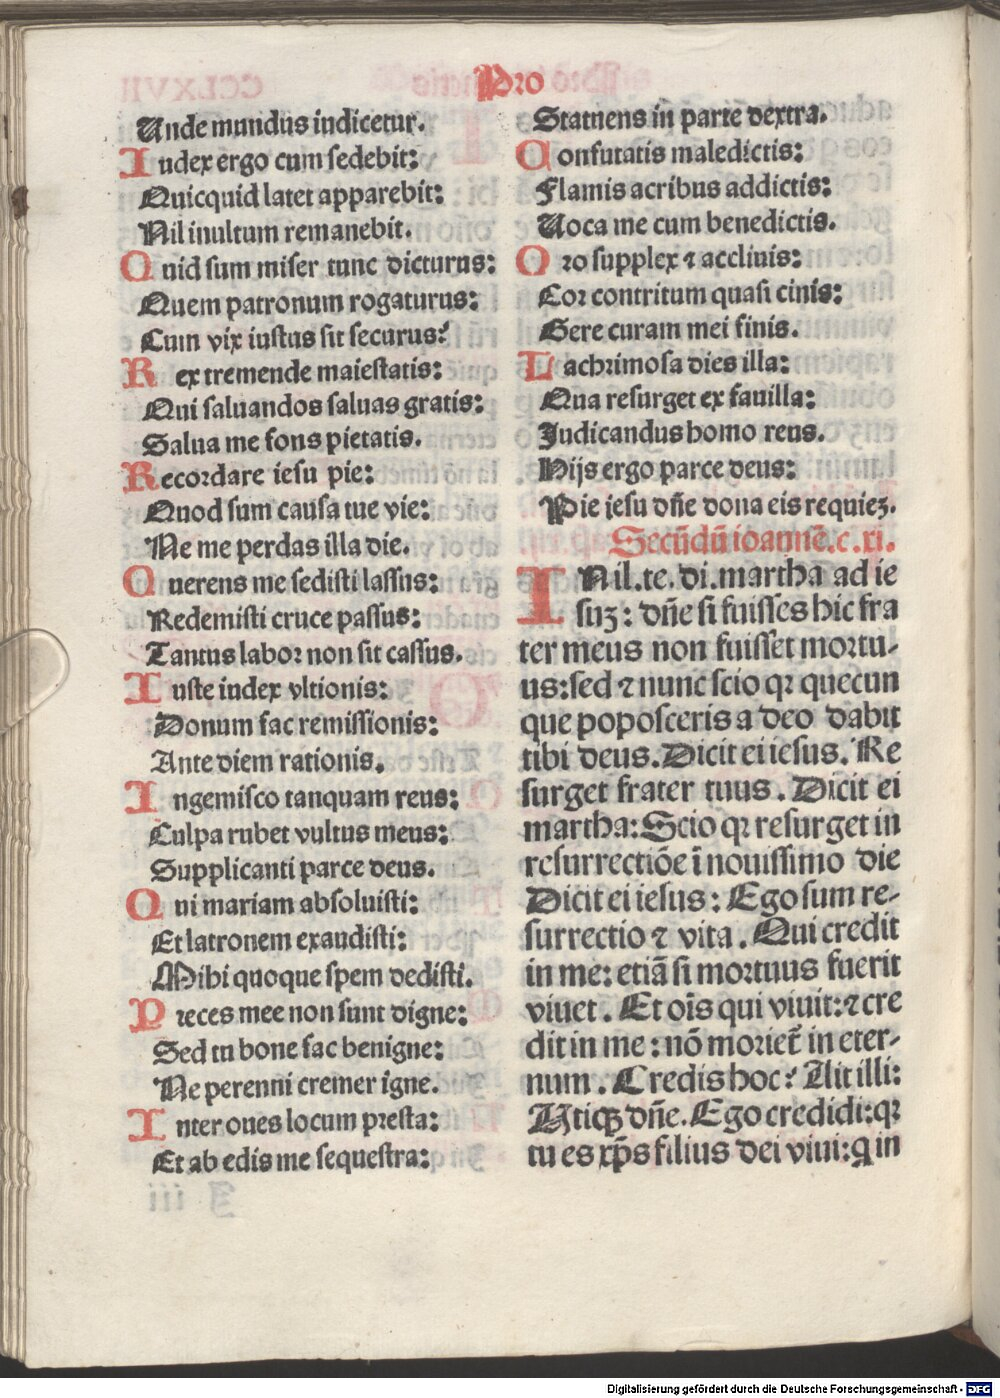 Pro
Unde mundus iudicetur.
Iudex ergo cum sedebit:
Quicquid latet apparebit:
Nil inultum remanebit.
Quid sum miser tunc dicturus:
Quem patronum rogaturus:
Cum vix iustus sit securus?
Rex tremende maiestatis:
Qui saluandos saluas gratis:
Salua me fons pietatis.
Recordare iesu pie:
Quod sum causa tue vie:
Ne me perdas illa die.
Querens me sedisti lassus:
Redemisti cruce passus:
Tantus labor non sit cassus.
Iuste iudex vltionis:
Donum fac remissionis:
Ante diem rationis.
Ingemisco tanquam reus:
Culpa rubet vultus meus:
Supplicanti parce deus.
Qui mariam absoluisti:
Et latronem exaudisti:
Mihi quoque spem dedisti.
Preces mee non sunt digne:
Sed tu bone fac benigne:
Ne perenni cremer igne.
Inter oues locum presta:
Et ab edis me sequestra:
Statuens in parte dextra.
Confutatis maledictis:
Flamis acribus addictis:
Uoca me cum benedictis.
Oro supplex ⁊ accliuis:
Cor contritum quasi cinis:
Gere curam mei finis.
Lachrimosa dies illa:
Qua resurget ex fauilla:
Judicandus homo reus.
Hijs ergo parce deus:
Pie iesu dñe dona eis requieꝫ.
Secũdũ ioannẽ.c.xi.
INil.te.di.martha ad ie
suꝫ: dñe si fuisses hic fra
ter meus non fuisset mortu-
us:sed ⁊ nunc scio qꝛ quecun
que poposceris a deo dabit
tibi deus.Dicit ei iesus. Re
surget frater tuus. Dicit ei
martha:Scio qꝛ resurget in
resurrectiõe ĩ nouissimo die
Dicit ei iesus: Ego sum re-
surrectio ⁊ vita. Qui credit
in me: etiã si mortuus fuerit
viuet. Et oĩs qui viuit:⁊ cre
dit in me: nõ moriet̃ in eter-
num. Credis hoc? Ait illi:
Utiqꝫ dñe. Ego credidi:qꝛ
tu es xp̃s filius dei viui:q̃ in
Digitalisierung gefördert durch die Deutsche Forschungsgemeinschaft - DFG